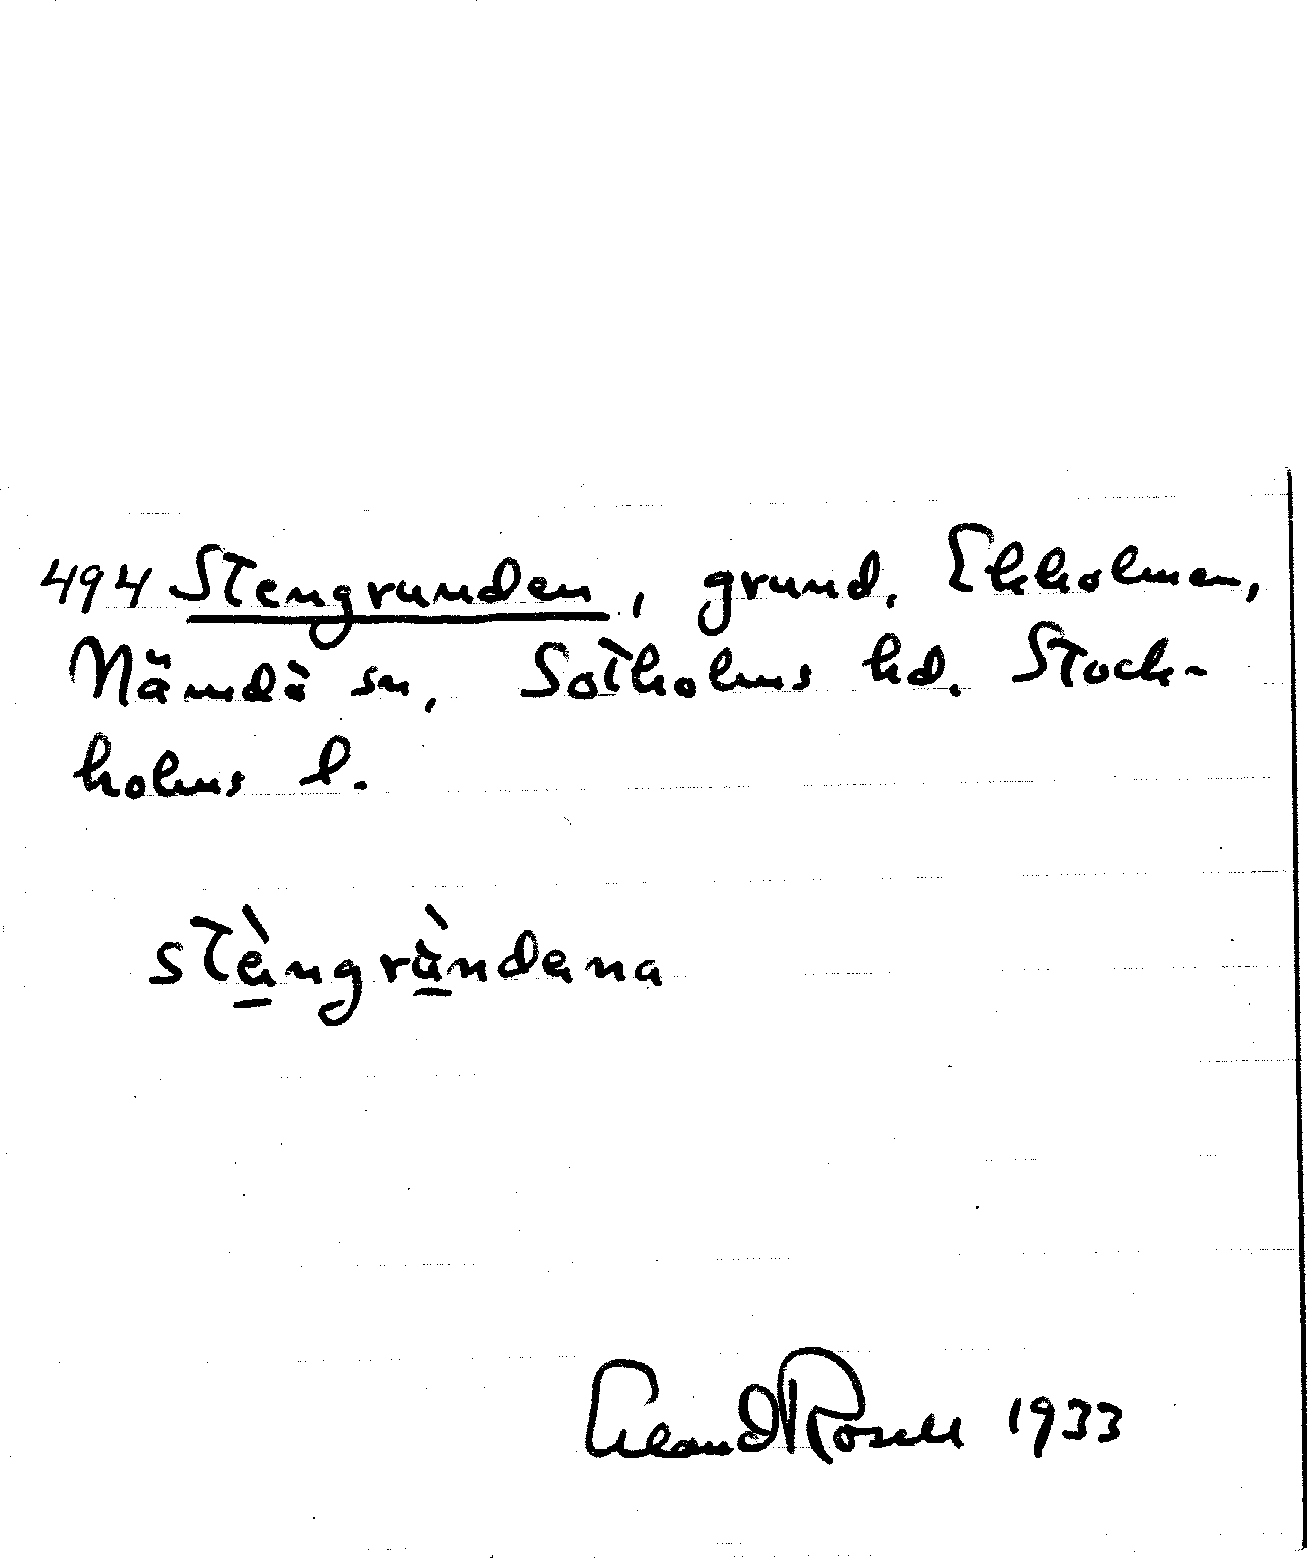 494 Stengrunden, grund. Ekholmen,
Nämdö sn, Sotholms hd. Stock-
holms l.
stèngrùndena
Erland Rosell 1933